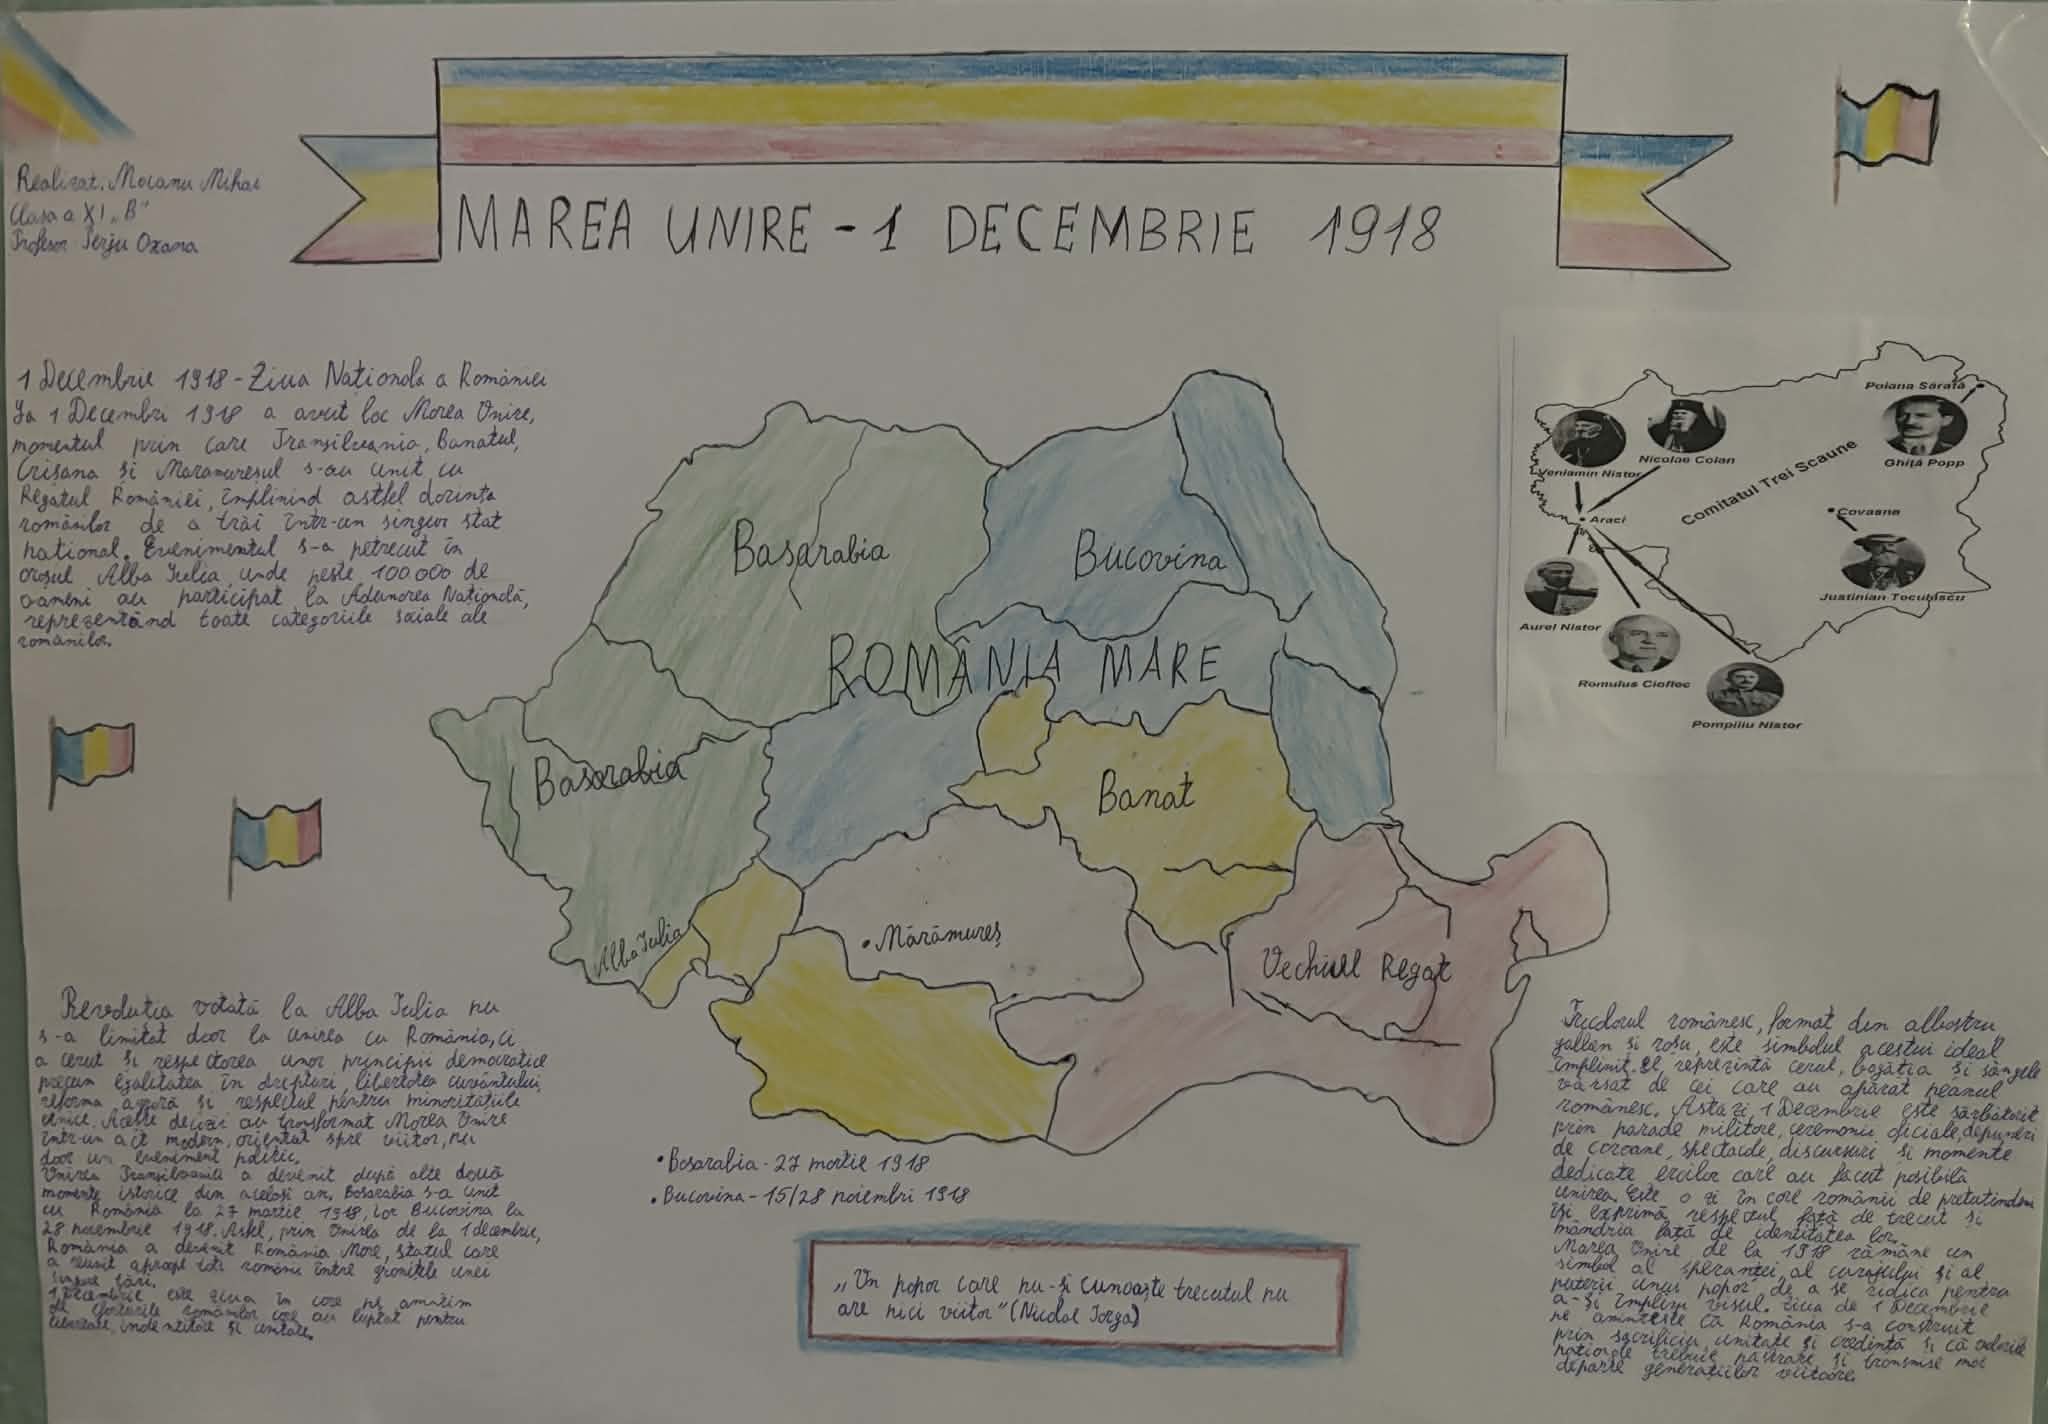 MAREA UNIRE - 1 DECEMBRIE 1918
Realizat: Mocanu Mihai
Clasa a XI „B"
Profesor Terju Oxana
1 Decembrie 1918 - Ziua Națională a României
La 1 Decembri 1918 a avut loc Marea Unire,
momentul prin care Transilvania, Banatul,
Crișana și Maramureșul s-au unit cu
Regatul României, împlinind astfel dorința
românilor de a trăi într-un singur stat
național. Evenimentul s-a petrecut în
orașul Alba Iulia, unde peste 100 000 de
oameni au participat la Adunarea Națională,
reprezentând toate categoriile sociale ale
românilor.
Basarabia
Bucovina
ROMÂNIA MARE
Basarabia
Banat
Alba Iulia
• Mărămureș
Vechiul Regat
Poiana Sărată
Veniamin Nistor
Nicolae Colan
Ghiță Popp
Comitatul Trei Scaune
Araci
Covasna
Aurel Nistor
Justinian Teculescu
Romulus Cioflec
Pompiliu Nistor
Rezoluția votată la Alba Iulia nu
s-a limitat doar la unirea cu România, ci
a cerut și respectarea unor principii democratice
precum egalitatea în drepturi, libertatea cuvântului,
reforma agrară și respectul pentru minoritățiile
etnice. Aceste decizii au transformat Marea Unire
într-un act modern, orientat spre viitor, nu
doar un eveniment politic.
Unirea Transilvaniei a devenit după alte două
momente istorice din același an. Basarabia s-a unit
cu România la 27 martie 1918, iar Bucovina la
28 noiembrie 1918. Astfel, prin Unirea de la 1 decembrie,
România a devenit România Mare, statul care
a reușit aproape toți românii între granițele unei
singure țări.
1 Decembrie este ziua în care ne amintim
de eforturile românilor care au luptat pentru
libertate, indentitate și unitate.
• Basarabia - 27 martie 1918
• Bucovina - 15/28 noiembri 1918
„Un popor care nu-și cunoaște trecutul nu
are nici viitor" (Nicolae Iorga)
Tricolorul românesc, format din albastru
galben și roșu, este simbolul acestui ideal
împlinit. El reprezintă cerul, bogăția și sângele
vărsat de cei care au apărat neamul
românesc. Astăzi, 1 Decembrie este sărbătorit
prin parade militare, ceremonii oficiale, depuneri
de coroane, spectacole, discursuri și momente
dedicate eroilor care au făcut posibilă
unirea. Este o zi în care românii de pretutindeni
își exprimă respectul față de trecut și
mândria față de identitatea lor.
Marea Unire de la 1918 rămâne un
simbol al speranței, al curajului și al
puterii unui popor de a se ridica pentru
a-și împlini visul. Ziua de 1 Decembrie
ne amintește că România s-a construit
prin sacrificiu, unitate și credință și că valorile
naționale trebuie păstrate și transmise mai
departe generațiilor viitoare.